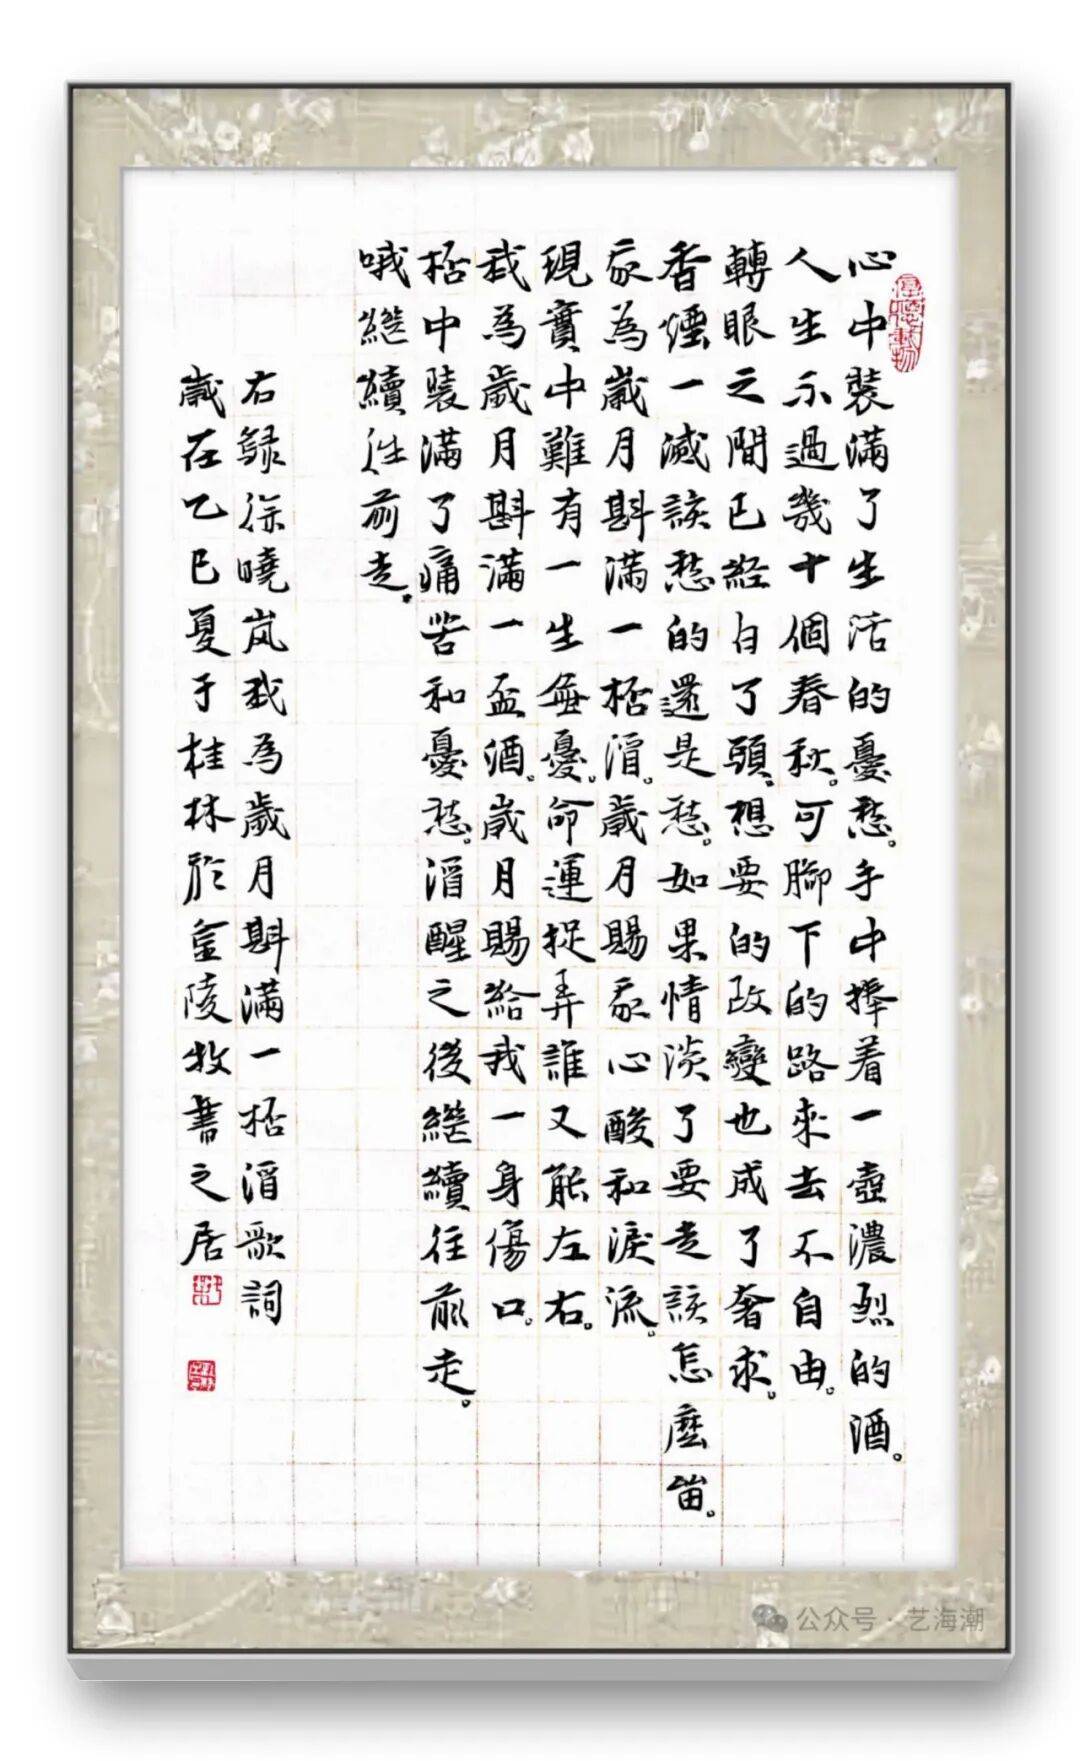 心中裝滿了生活的憂愁。手中捧着一壺濃烈的酒。
人生不過幾十個春秋。可腳下的路來去不自由。
轉眼之間已經白了頭。想要的改變也成了奢求。
香煙一滅該愁的還是愁。如果情淡了要走該怎麼留。
我為歲月斟滿一杯酒。歲月賜我心酸和淚流。
現實中難有一生無憂。命運捉弄誰又能左右。
我為歲月斟滿一盃酒。歲月賜給我一身傷口。
杯中裝滿了痛苦和憂愁。酒醒之後繼續往前走。
哦繼續往前走。
右録徐曉岚我為歲月斟滿一杯酒歌詞
歲在乙巳夏于桂林於金陵牧書之居
厚德載物
公众号·艺海潮